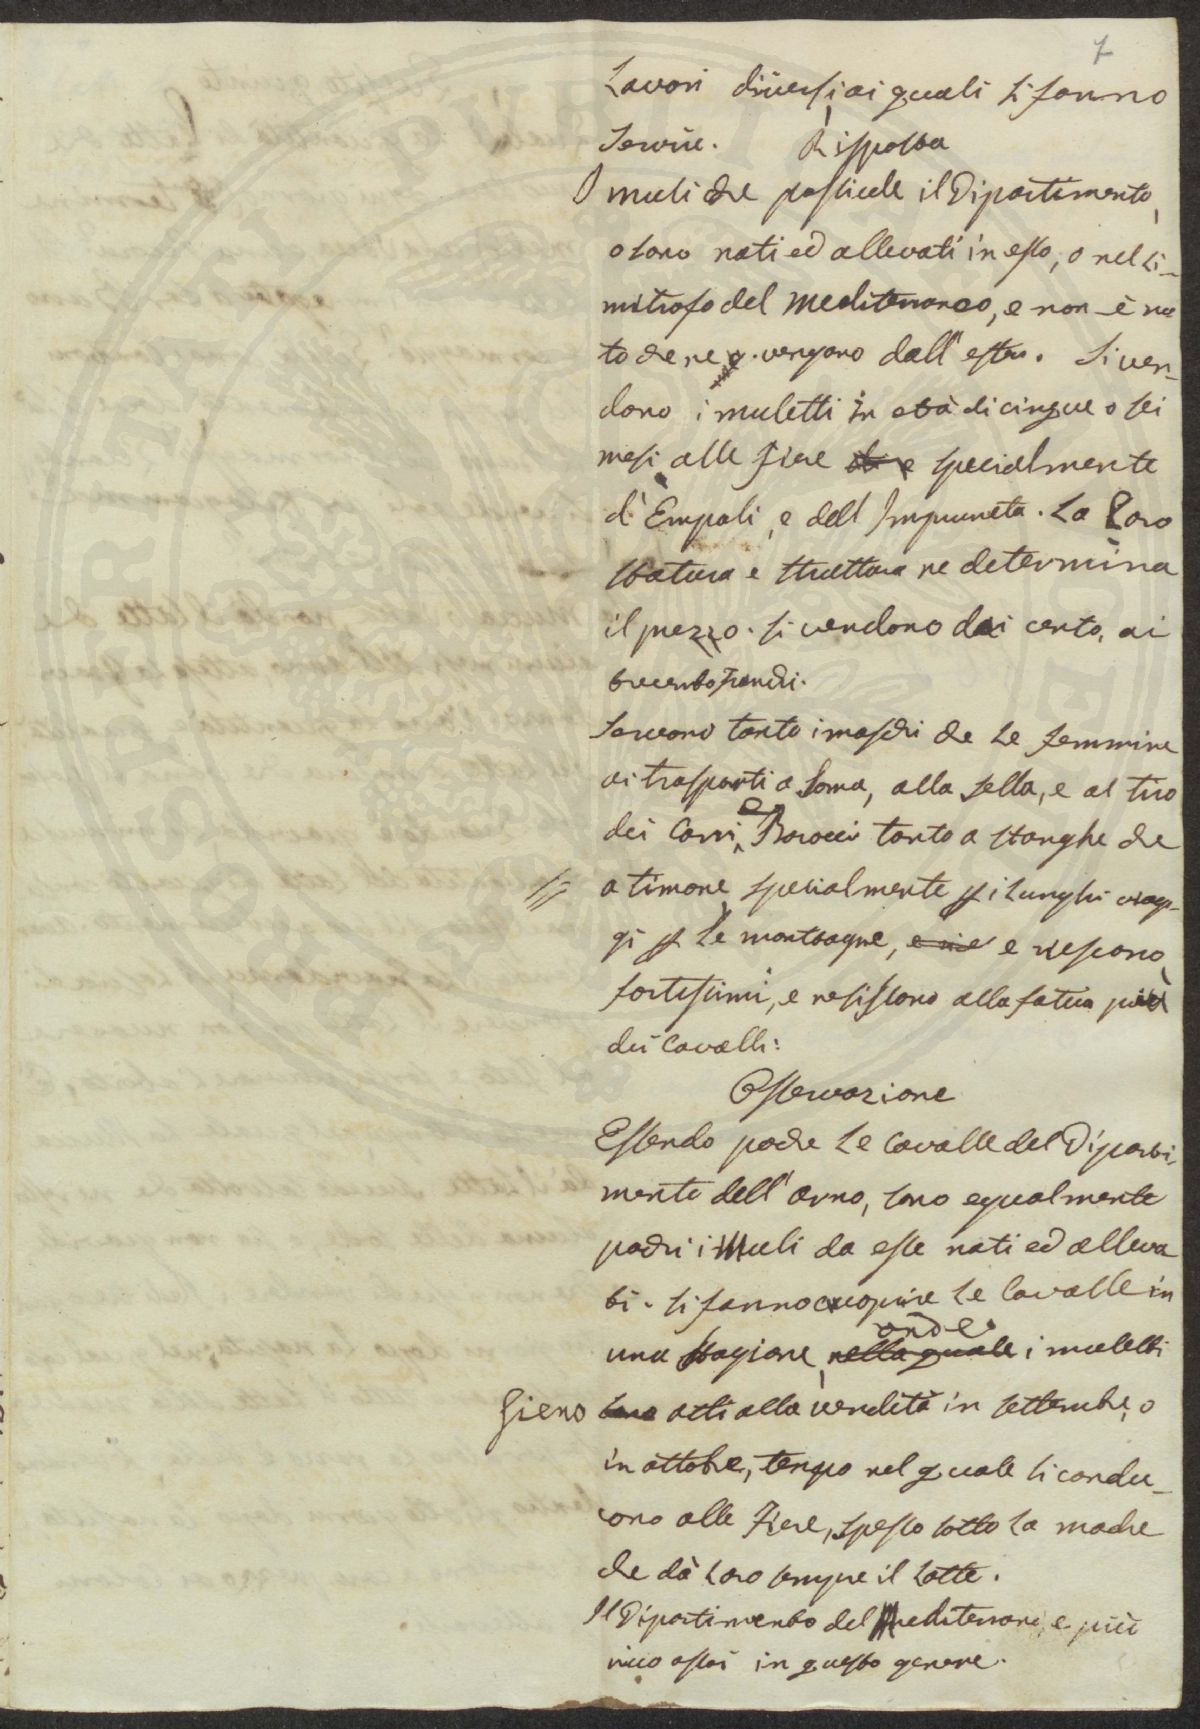 7
Lavori diversi, ai quali si fanno
servire. Risposta
I muli che possiede il Dipartimento,
o sono nati ed allevati in esso, o nel li-
mitrofo del Mediterraneo, e non è no
to che ne vengano dall'estero. Si ven-
dono i muletti in età di cinque o sei
mesi alle Fiere e specialmente
d'Empoli, e dell'Impruneta. La Loro
statura e struttura ne determina
il prezzo. Si vendono dai cento, ai
trecento franchi.
Servono tanto i maschi che le femmine
ai trasporti a Soma, alla sella, e al tiro
dei Carri, e Barocci tanto a stanghe che
a timone, specialmente p i lunghi viag-
gi p le montagne, e riescono
fortissimi, e resistono alla fatica più
dei Cavalli:
Osservazione
Essendo poche le Cavalle del Diparti-
mento dell'Arno, sono egualmente
pochi i Muli da esse nati ed alleva
ti. Si fanno cuoprire le Cavalle in
una stagione, nella quale onde i muletti
sieno sono atti alla vendita in settembre, o
in ottobre, tempo nel quale si condu-
cono alle Fiere, spesso sotto la madre
che dà loro sempre il latte.
Il Dipartimento del Mediterraneo, e più
ricco assai in questo genere.